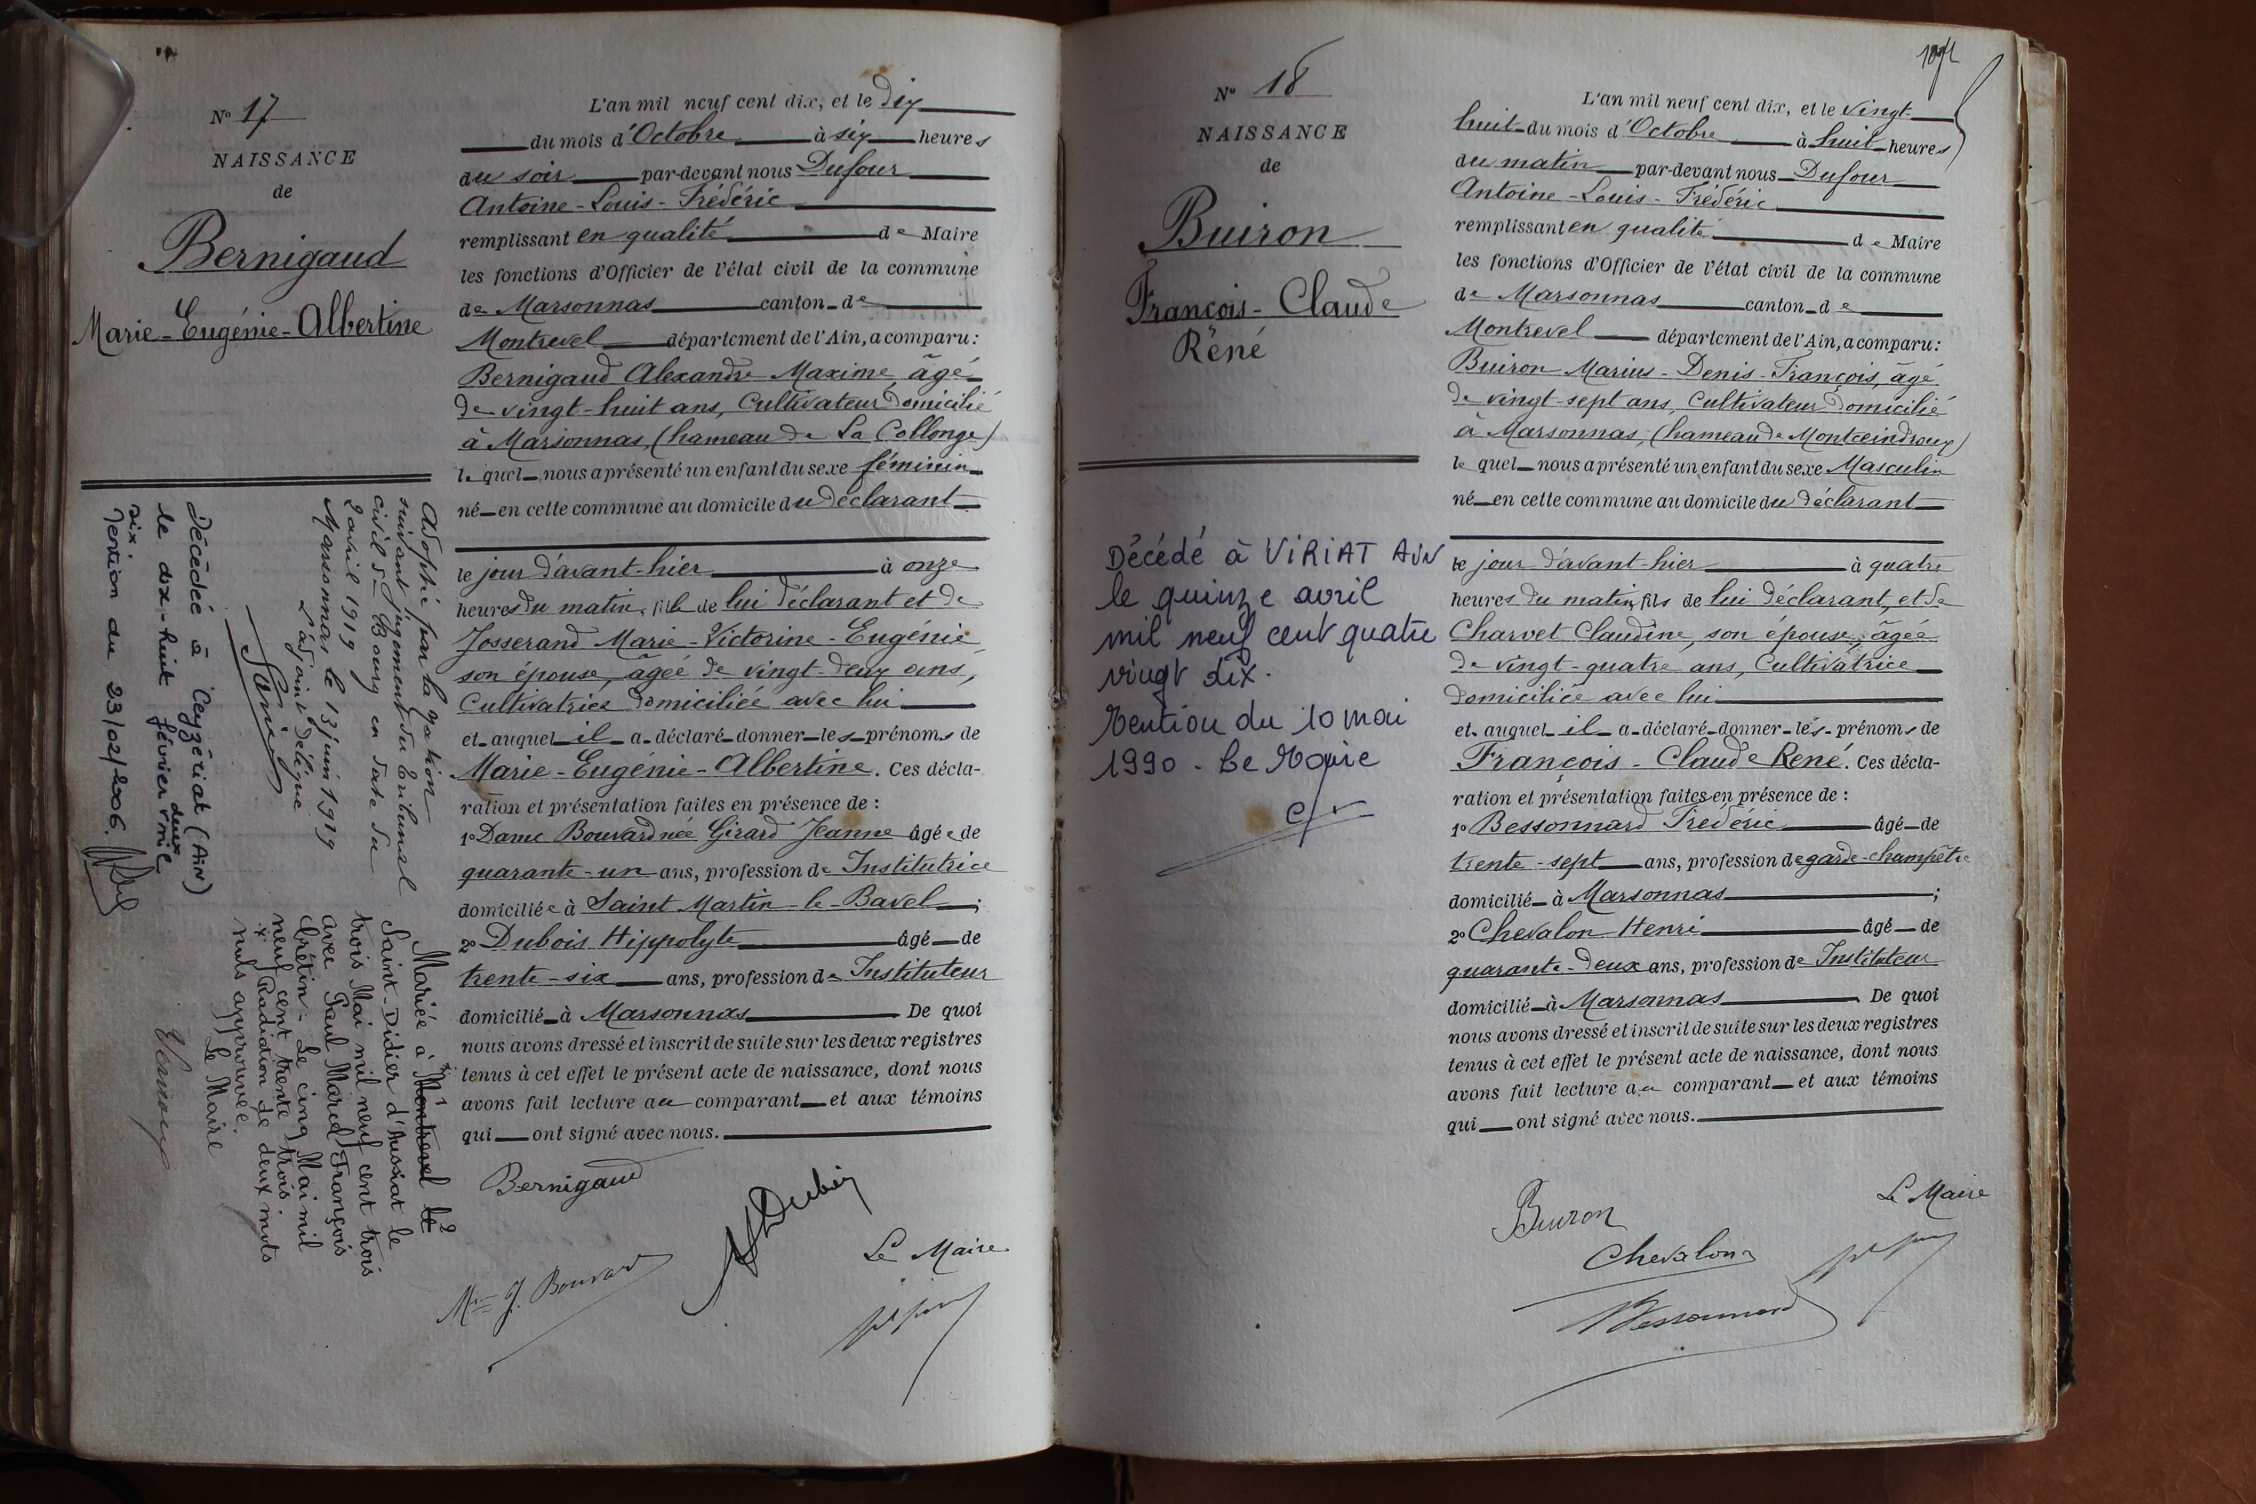 N° 17
NAISSANCE
de
Bernigaud
Marie-Eugénie-Albertine
L'an mil neuf cent dix, et le dix
du mois d'Octobre à six heures
du soir par-devant nous Dufour
Antoine-Louis-Frédéric
remplissant en qualité de Maire
les fonctions d'Officier de l'état civil de la commune
de Marsonnas canton de
Montrevel département de l'Ain, a comparu :
Bernigaud Alexandre Maxime âgé
de vingt-huit ans, Cultivateur domicilié
à Marsonnas, (hameau de La Collonge)
lequel nous a présenté un enfant du sexe féminin
né en cette commune au domicile du déclarant
le jour d'avant-hier à onze
heures du matin, fille de lui déclarant et de
Josserand Marie-Victorine-Eugénie
son épouse, âgée de vingt-deux ans,
Cultivatrice domiciliée avec lui
et auquel il a déclaré donner les prénoms de
Marie-Eugénie-Albertine. Ces décla-
ration et présentation faites en présence de :
1° Dame Bouvard née Girard Jeanne âgée de
quarante-un ans, profession de Institutrice
domiciliée à Saint Martin-le-Bavel ;
2° Dubois Hippolyte âgé de
trente-six ans, profession de Instituteur
domicilié à Marsonnas De quoi
nous avons dressé et inscrit de suite sur les deux registres
tenus à cet effet le présent acte de naissance, dont nous
avons fait lecture au comparant et aux témoins
qui ont signé avec nous.
Bernigaud
HDubois
Le Maire
Mme J. Bouvard
Adoptée par la nation
suivant jugement du tribunal
civil de Bourg en date du
2 avril 1919
Marsonnas le 13 juin 1919
L'adjoint délégué
Mariée à Montrevel le
Saint-Didier d'Aussiat le
trois Mai mil neuf cent trente trois
avec Paul Marcel François
Crétin - Le cinq Mai mil
neuf cent trente trois.
Radiation de deux mots
nuls approuvée.
Le Maire
Décédée à Ceyzériat (Ain)
le dix-huit février deux mil
six.
Mention du 23/02/2006.
N° 18
NAISSANCE
de
Buiron
François-Claude
Réné
L'an mil neuf cent dix, et le vingt-
huit du mois d'Octobre à huit heures
du matin par-devant nous Dufour
Antoine-Louis-Frédéric
remplissant en qualité de Maire
les fonctions d'Officier de l'état civil de la commune
de Marsonnas canton de
Montrevel département de l'Ain, a comparu :
Buiron Marius-Denis-François, âgé
de vingt-sept ans, Cultivateur domicilié
à Marsonnas, (hameau de Montceindroux)
lequel nous a présenté un enfant du sexe Masculin
né en cette commune au domicile du déclarant
le jour d'avant-hier à quatre
heures du matin, fils de lui déclarant, et de
Charvet Claudine, son épouse, âgée
de vingt-quatre ans, Cultivatrice
domiciliée avec lui
et auquel il a déclaré donner les prénoms de
François-Claude René. Ces décla-
ration et présentation faites en présence de :
1° Bessonnard Frédéric âgé de
trente-sept ans, profession de garde-champêtre
domicilié à Marsonnas ;
2° Chevalon Henri âgé de
quarante-deux ans, profession de Instituteur
domicilié à Marsonnas De quoi
nous avons dressé et inscrit de suite sur les deux registres
tenus à cet effet le présent acte de naissance, dont nous
avons fait lecture au comparant et aux témoins
qui ont signé avec nous.
Buiron
Le Maire
Chevalon
Bessonnard
Décédé à VIRIAT AIN
le quinze avril
mil neuf cent quatre
vingt dix.
Mention du 10 mai
1990 - Le Maire